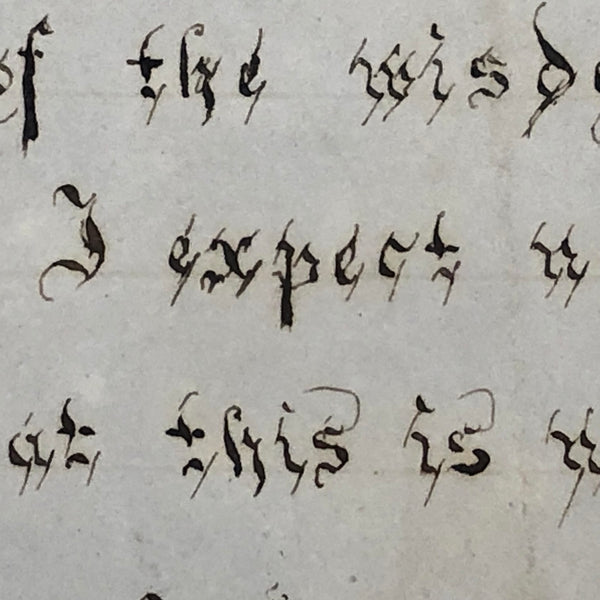 of the wisdo
I expect n
at this is